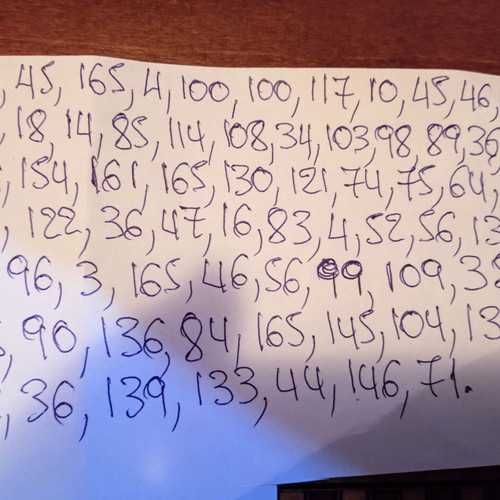 , 45, 165, 4, 100, 100, 117, 10, 45, 46,
, 18, 14, 85, 114, 108, 34, 103, 98, 89, 36
, 154, 161, 165, 130, 121, 74, 75, 64,
, 122, 36, 47, 16, 83, 4, 52, 56, 13
96, 3, 165, 46, 56, 99, 109, 38
, 90, 136, 84, 165, 145, 104, 13
, 36, 139, 133, 44, 146, 71.